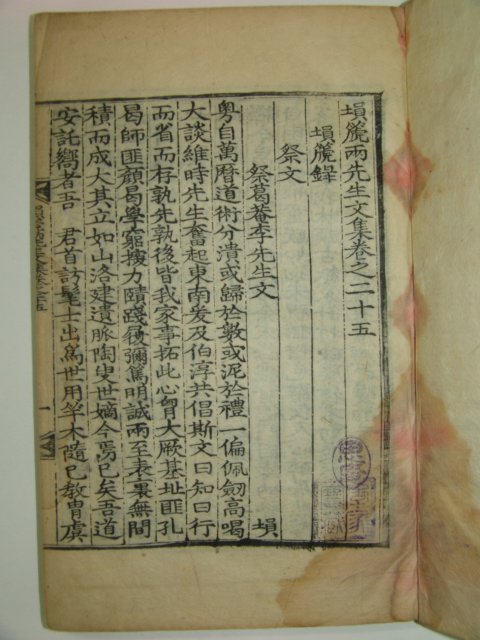 塤篪兩先生文集卷之二十五
塤篪錄
祭文
祭葛菴李先生文 塤
粤自萬曆道術分潰或歸於敦或泥於禮一偏佩劒高喝
大談維時先生奮起東南爰及伯淳共倡斯文曰知曰行
而省而存孰先孰後皆我家事拓此心胷大厥基址匪孔
曷師匪顔曷學窮搜力賾踐履彌篤明誠兩至表裏無間
積而成大其立如山洛建遺脈陶叟世嫡今焉已矣吾道
安託嚮者吾 君首訪髦士出爲世用竺木隨已敎胄虞